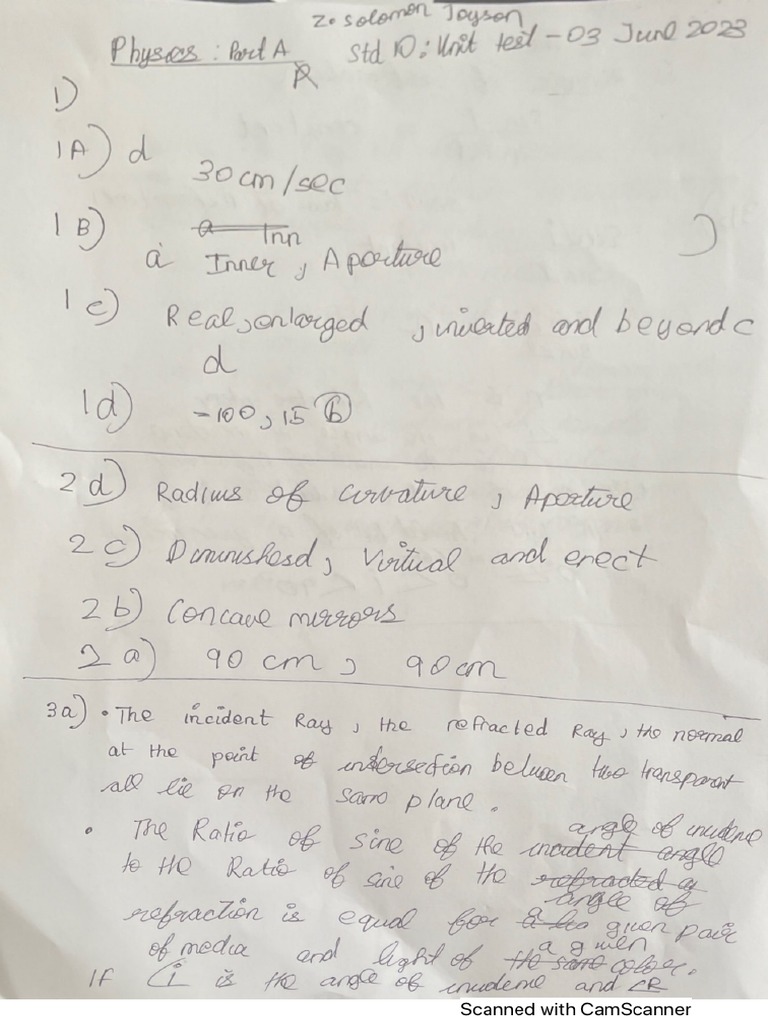 Z. Solomon Joyson
Physics : Part A Std 10 : Unit test - 03 June 2023
1)
1A) d
30 cm/sec
1B) a Inn
a Inner, Aperture
1c) Real, enlarged , inverted and beyond c
d
1d) -100, 15 (b)
2 d) Radius of curvature , Aperture
2 c) Diminished, Virtual and erect
2 b) Concave mirrors
2 a) 90 cm , 90 cm
3a) • The incident Ray, the refracted Ray, the normal
at the point of intersection between two transparent
all lie on the same plane.
angle of incidence
• The Ratio of sine of the incident angle
to the Ratio of sine of the refracted a
angle of
refraction is equal for given pair
a given
of media and light of the same color.
If ∠i is the angle of incidence and ∠R
Scanned with CamScanner